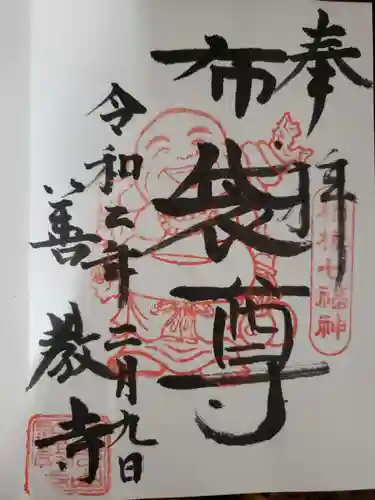 奉拝
布袋尊
令和二年二月九日
善教寺
七福神